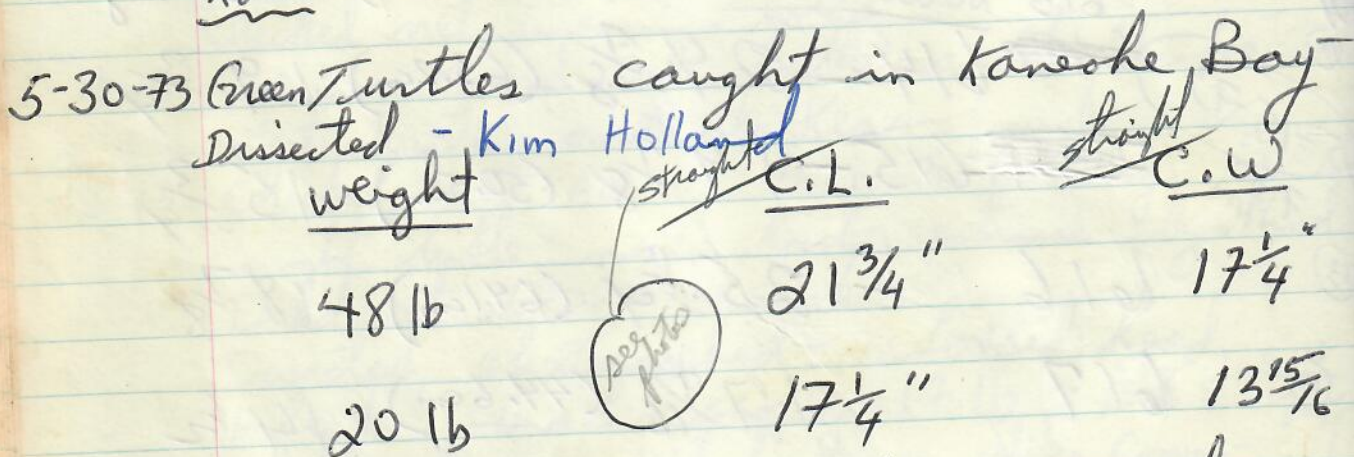 5-30-73 Green Turtles caught in Kaneohe Bay-
Dissected - Kim Holland
weight straight C.L. straight C.W
48 lb 21 3/4" 17 1/4"
see photos
20 lb 17 1/4" 13 15/16